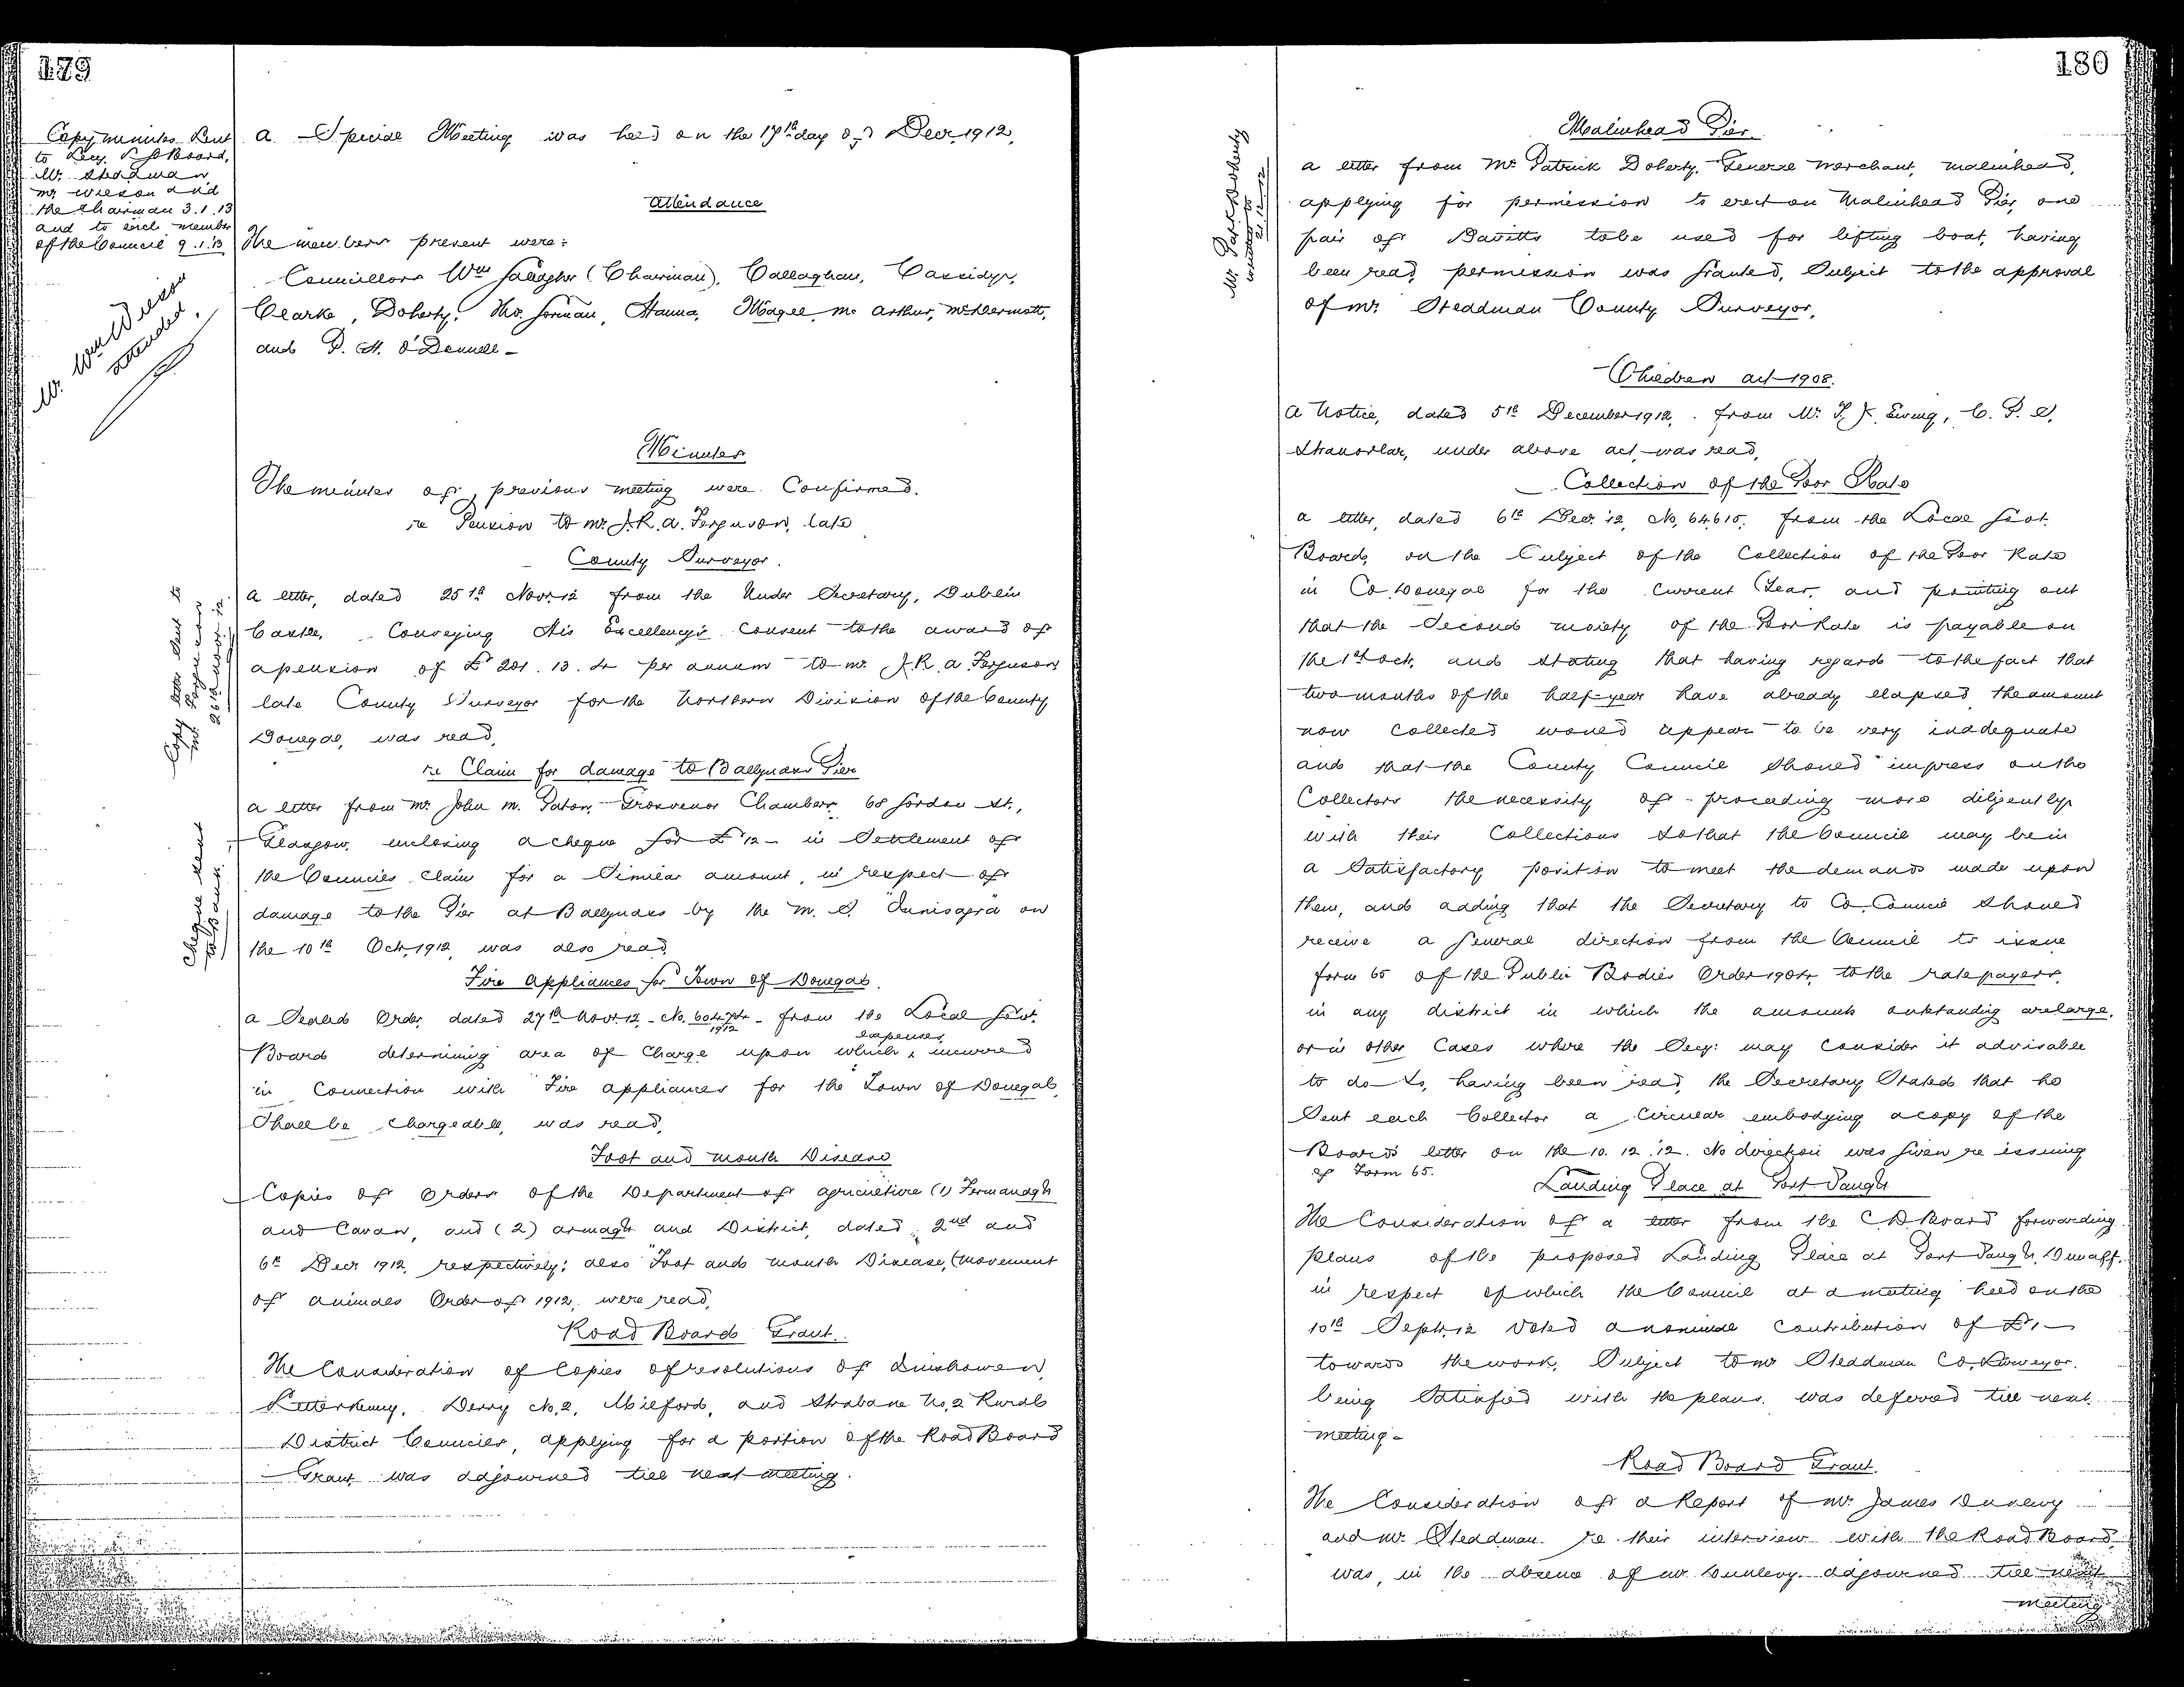 179
Copy minutes sent
to Secy. C D Board,
Mr. Steadman
Mr Wilson and
the Chairman 3.1.13
and to each member
of the Council 9.1.13
Mr. Wm Wilson
attended.
A Special Meeting was held on the 17th day of Decr. 1912,
Attendance
The members present were:
Councillors Wm Gallagher (Chairman), Callaghan, Cassidy,
Clarke, Doherty, Thos. Gorman, Hanna, Magee, Mc Arthur, McDermott,
and P. H. O'Donnell -
Minutes
The minutes of previous meeting were Confirmed.
re Pension to Mr. J. R. A. Ferguson, late
County Surveyor.
Copy letter sent to
Mr. Ferguson on
26th Novr. 12
A letter, dated 25th Novr. 12 from the Under Secretary, Dublin
Castle, Conveying His Excellency's Consent to the award of
a pension of £201.13.4 per annum to Mr. J. R. A. Ferguson
late County Surveyor for the Northern Division of the County
Donegal, was read,
re Claim for damage to Ballyness Pier
Cheque sent
to Bank
A letter from Mr. John M. Paton, Grosvenor Chambers, 68 Gordon St.,
Glasgow, enclosing a cheque for £12 - in Settlement of
the Councils claim for a Similar amount, in respect of
damage to the Pier at Ballyness by the M. S. "Innisagra" on
the 10th Oct. 1912, was also read,
Fire Appliances for Town of Donegal.
A Sealed Order, dated 27th Novr. 12 - No. 60474/1912 - from the Local Govt.
Board determining area of Charge upon which expenses, incurred
in Connection with Fire appliances for the Town of Donegal,
Shall be chargeable, was read,
Foot and Mouth Disease
Copies of Orders of the Department of Agriculture (1) Fermanagh
and Cavan, and (2) Armagh and District, dated 2nd and
6th Decr. 1912, respectively; also Foot and Mouth Disease, (Movement
of Animals Order of 1912, were read,
Road Board Grant.
The Consideration of Copies of resolutions of Inishowen,
Letterkenny, Derry No. 2, Milford, and Strabane No. 2 Rural
District Councils, applying for a portion of the Road Board
Grant was adjourned till next meeting.
180
Malinhead Pier.
Mr. Patk Doherty
21.12.12
A letter from Mr. Patrick Doherty, General Merchant, Malinhead,
applying for permission to erect on Malinhead Pier, one
pair of Davitts to be used for lifting boat, having
been read, permission was granted, Subject to the approval
of Mr. Steadman County Surveyor,
Children Act 1908.
A Notice, dated 5th December 1912, from Mr. T. J. Ewing, C. P. S.
Stranorlar, under above act, was read,
Collection of the Poor Rate
A letter, dated 6th Dec. 12, No. 64,615, from the Local Govt.
Board, on the Subject of the Collection of the Poor Rate
in Co. Donegal for the Current Year, and pointing out
that the Second moiety of the Poor Rate is payable on
the 1st Oct. and stating that having regard to the fact that
two months of the half-year have already elapsed, the amount
now collected would appear to be very inadequate
and that the County Council should impress on the
Collectors the necessity of proceeding more diligently
with their Collections so that the Council may be in
a Satisfactory position to meet the demands made upon
them, and adding that the Secretary to Co. Council should
receive a general direction from the Council to issue
form 65 of the Public Bodies Order 1904, to the rate payers
in any district in which the amounts outstanding are large,
or in other Cases where the Secy: may consider it advisable
to do so, having been read, the Secretary Stated that he
Sent each Collector a Circular embodying a copy of the
Board's letter on the 10.12.12. No direction was given re issuing
of Form 65.
Landing Place at Port Vaugh
The Consideration of a letter from the C D Board forwarding
plans of the proposed Landing Place at Port Vaugh, Dunaff,
in respect of which the Council at a meeting held on the
10th Septr. 12 Voted a nominal contribution of £1 -
towards the work, Subject to Mr Steadman Co. Surveyor.
being Satisfied with the plans. was deferred till next.
meeting -
Road Board Grant.
The Consideration of a Report of Mr. James Dunlevy
and Mr. Steadman re their interview with the Road Board
was, in the absence of Mr. Dunlevy adjourned till next
meeting